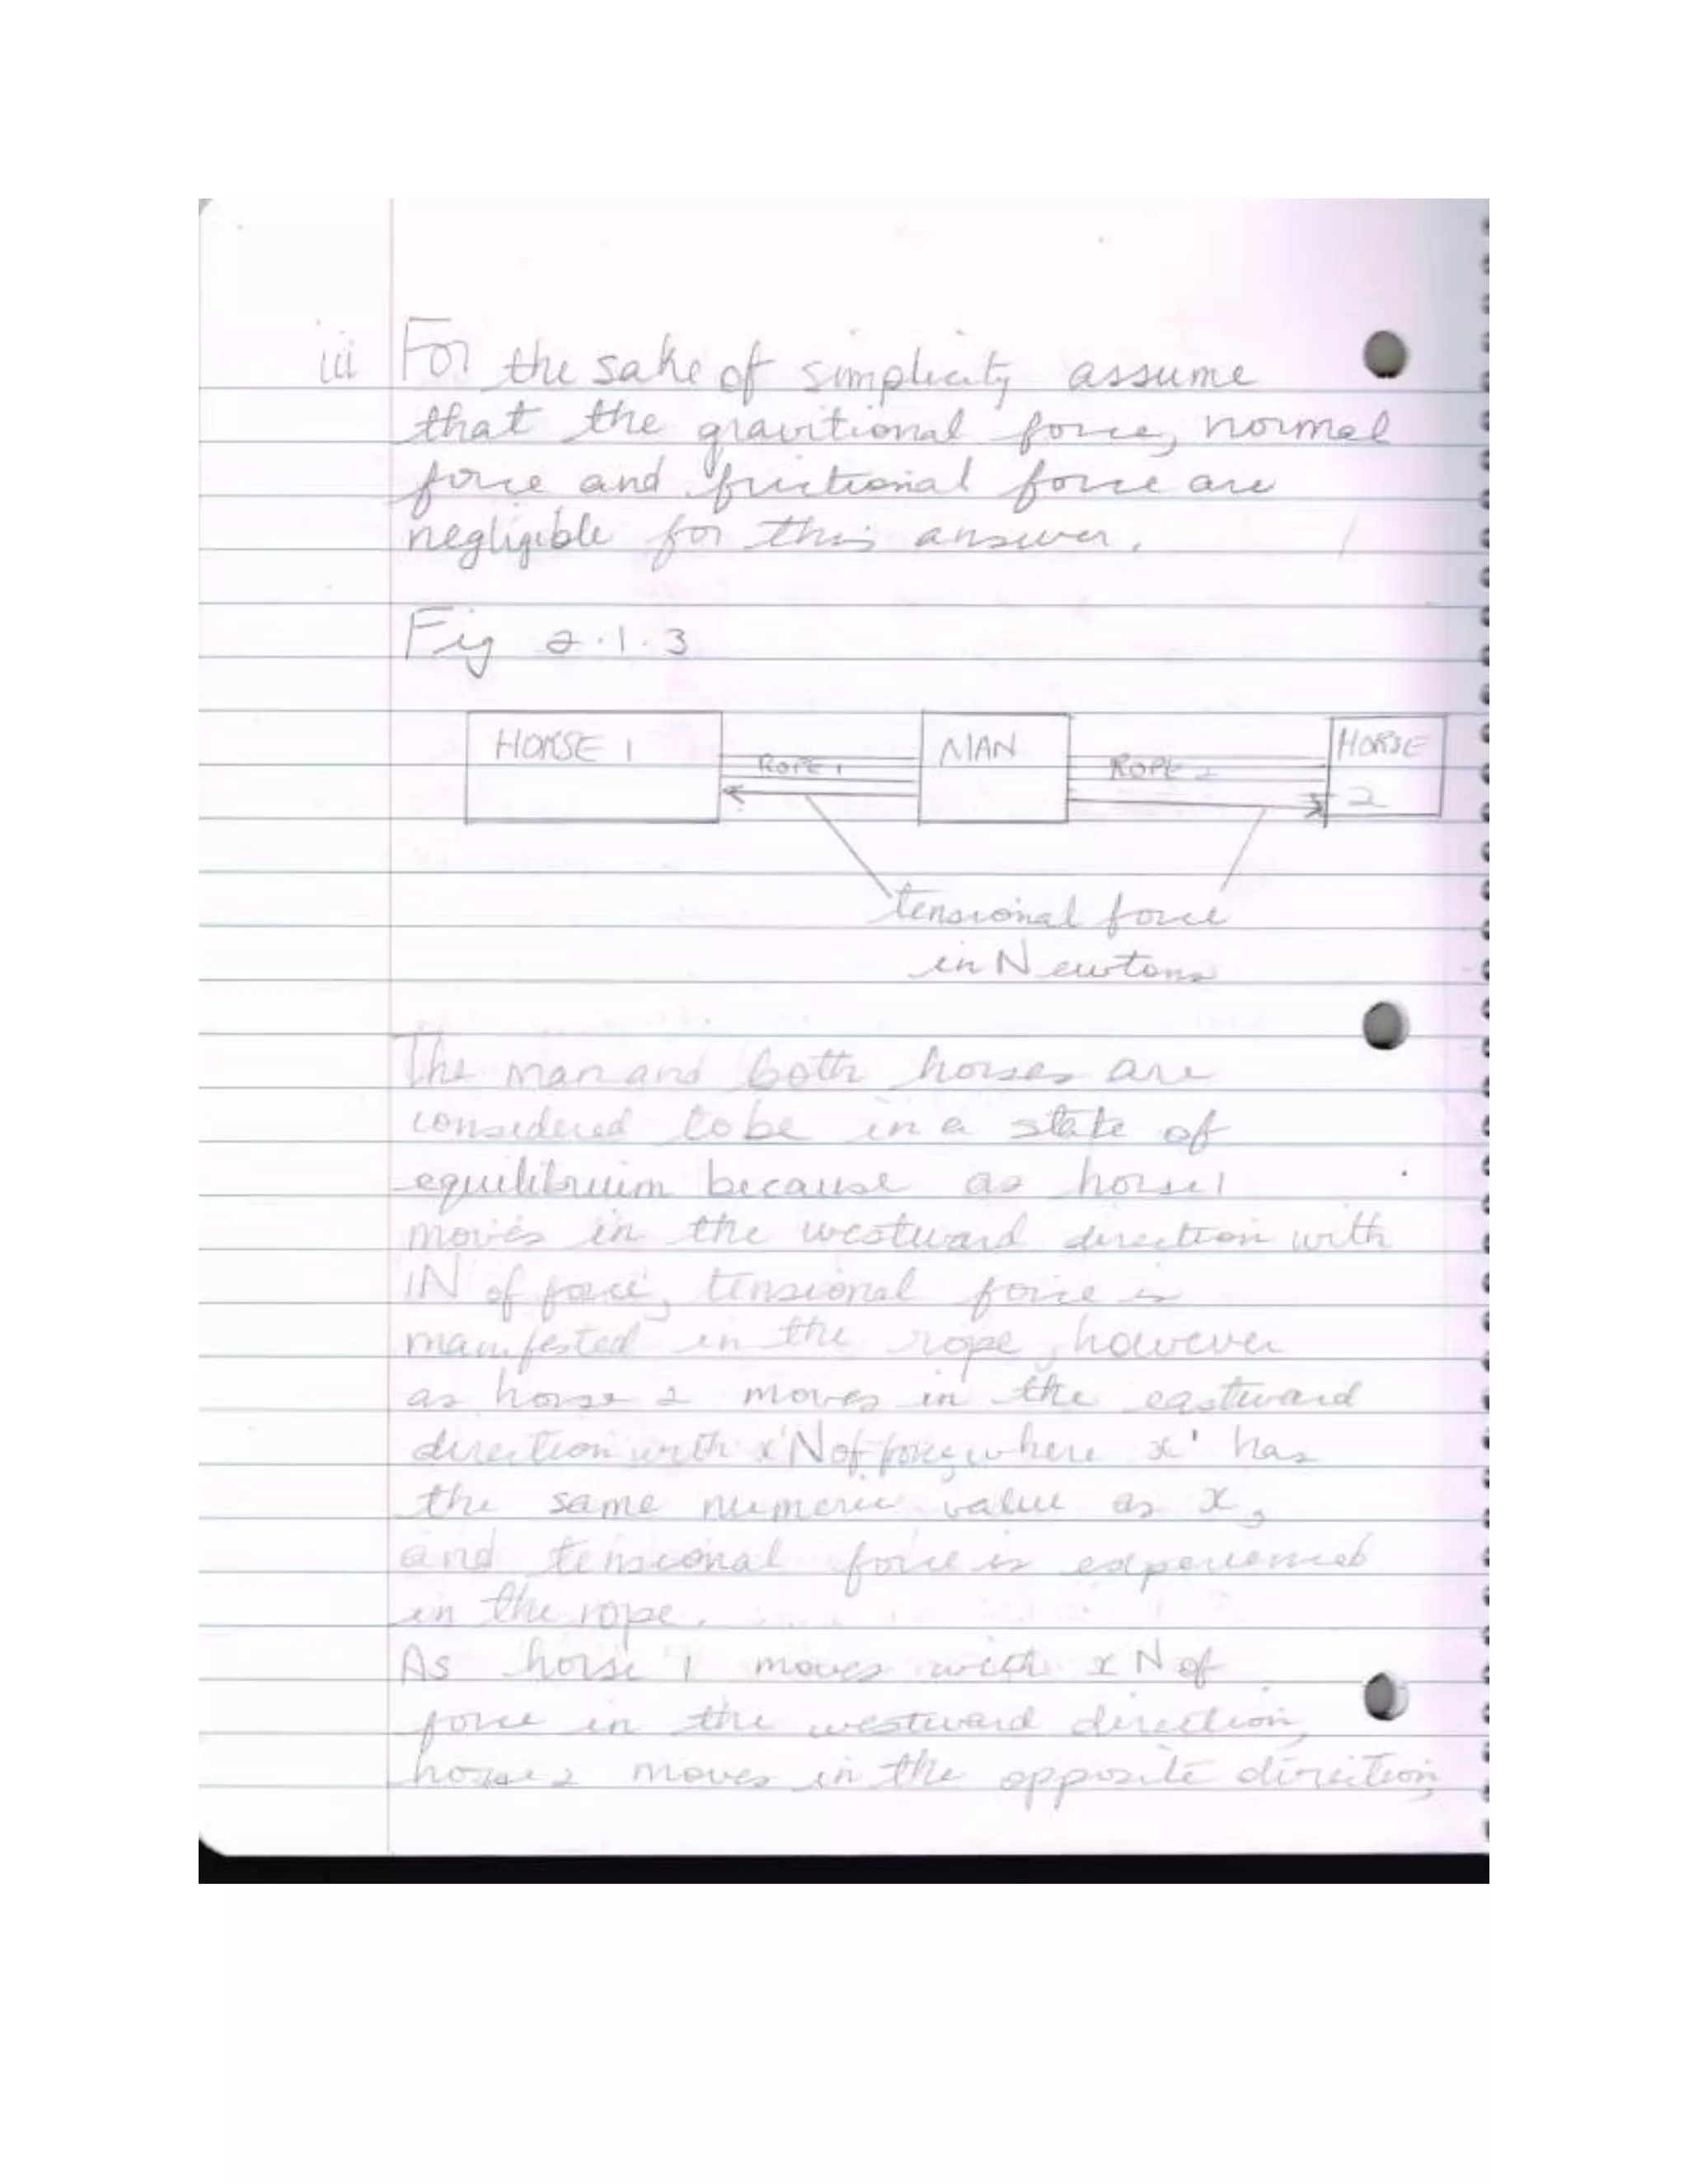 iii For the sake of simplicity assume
that the gravitional force, normal
force and frictional force are
negligible for this answer.
Fig 2.1.3
HORSE 1 ROPE 1 MAN ROPE 2 HORSE
2
tensional force
in Newtons
The man and both horses are
considered to be in a state of
equilibrium because as horse 1
moves in the westward direction with
1N of force, tensional force is
manifested in the rope, however
as horse 2 moves in the eastward
direction with x'N of force, where x' has
the same numeric value as x,
and tensional force is experienced
in the rope.
As horse 1 moves with x N of
force in the westward direction,
horse 2 moves in the opposite direction,